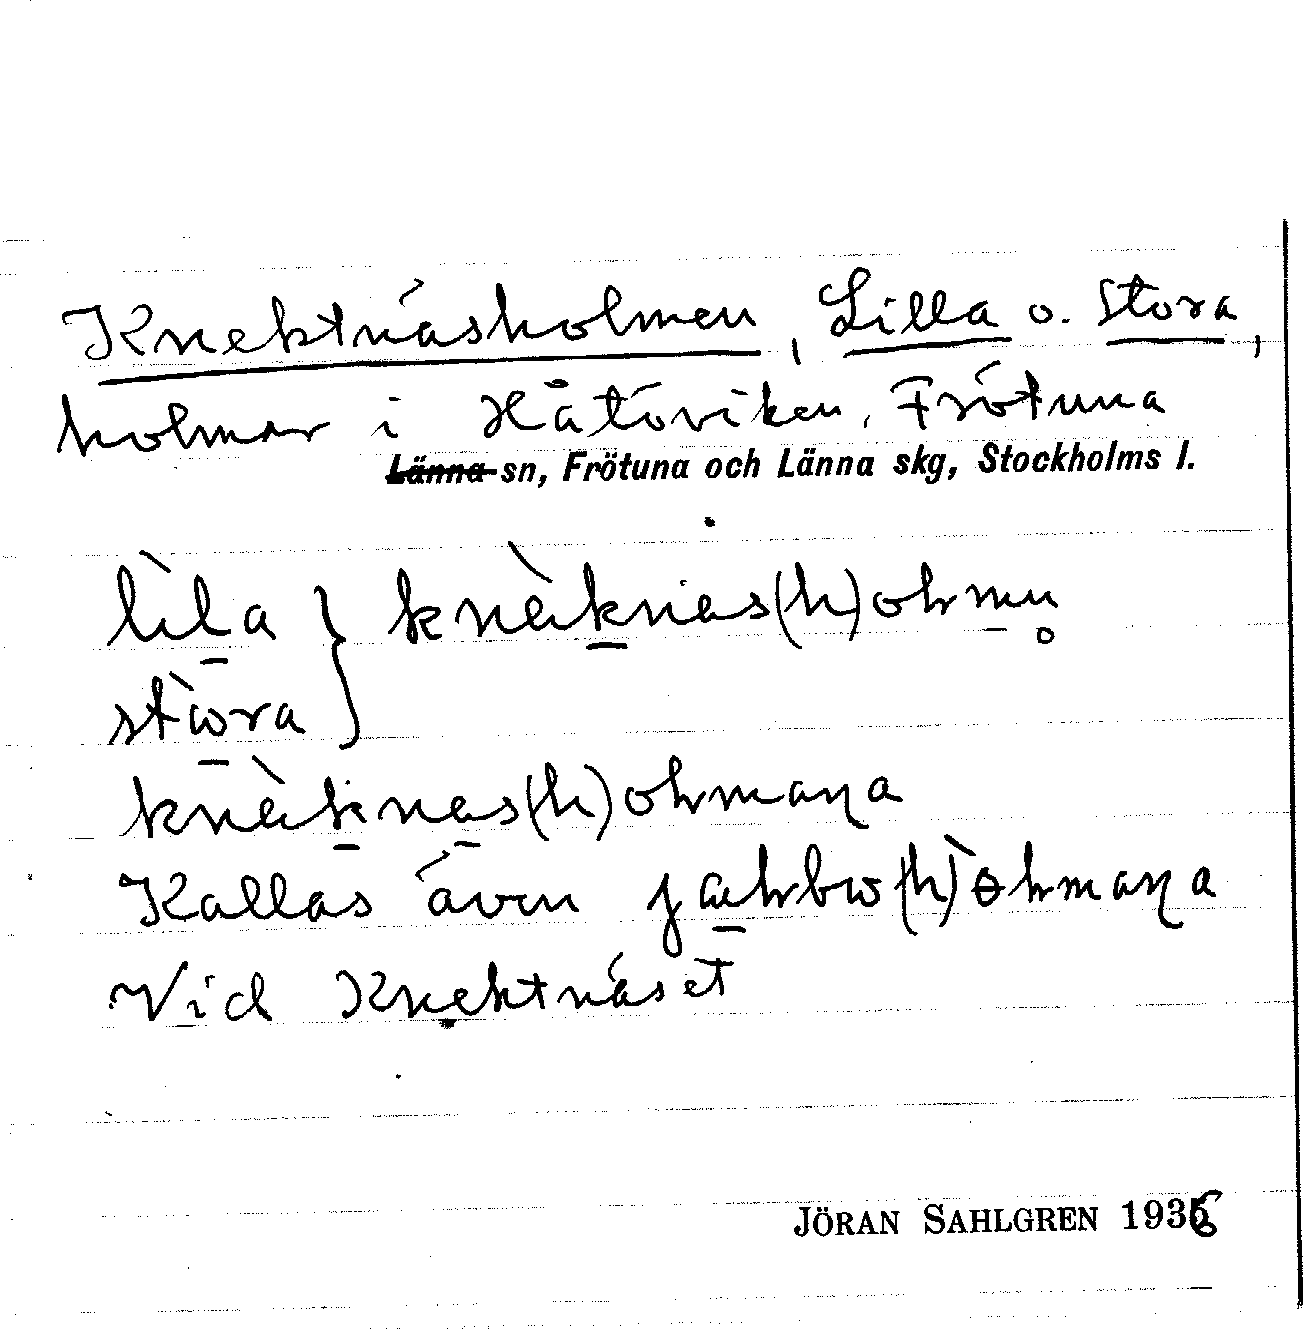 Knektnäsholmen, Lilla o. Stora,
holmar i Håtöviken, Frötuna
Länna sn, Frötuna och Länna skg, Stockholms l.
lìla } knæ̀knæs(h)ohmn̥
stòra
knæ̀knæs(h)ohmaɳa
Kallas även jæhbω(h)òhmaɳa
Vid Knektnäset
JÖRAN SAHLGREN 1936